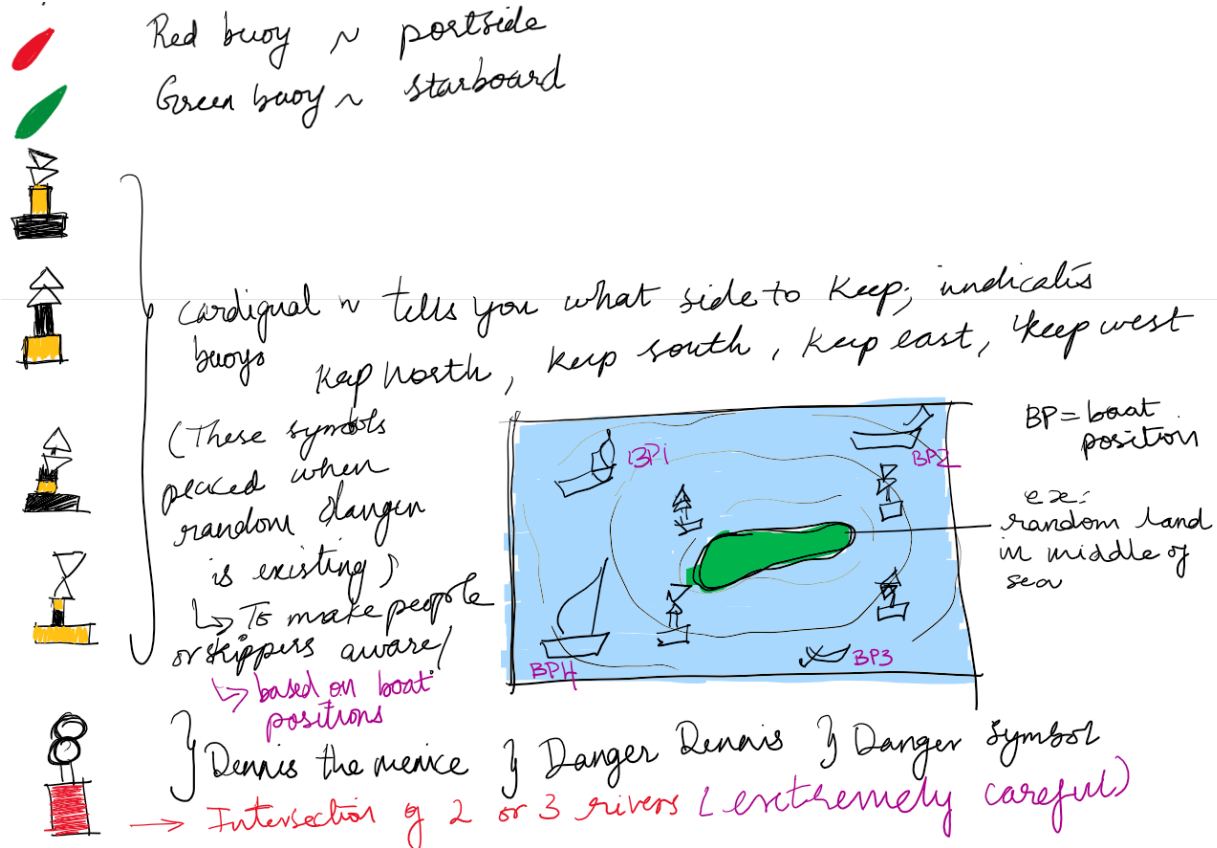 Red buoy ~ portside
Green buoy ~ starboard
Cardignal ~ tells you what side to keep; indicates
buoys
Keep North, keep south, keep east, keep west
(These symbols
placed when
random danger
is existing)
↳ To make people
or skippers aware/
↳ based on boat
positions
BP1
BP2
BP3
BP4
BP = boat
position
ex:
random land
in middle of
sea
} Dennis the menice } Danger Dennis } Danger symbol
→ Intersection of 2 or 3 rivers (extremely careful)